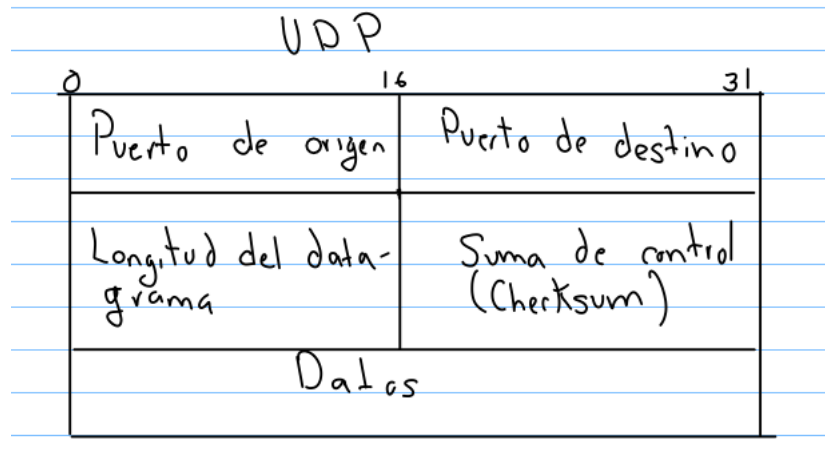 UDP
0 16 31
Puerto de origen Puerto de destino
Longitud del data-
grama
Suma de control
(Checksum)
Datos